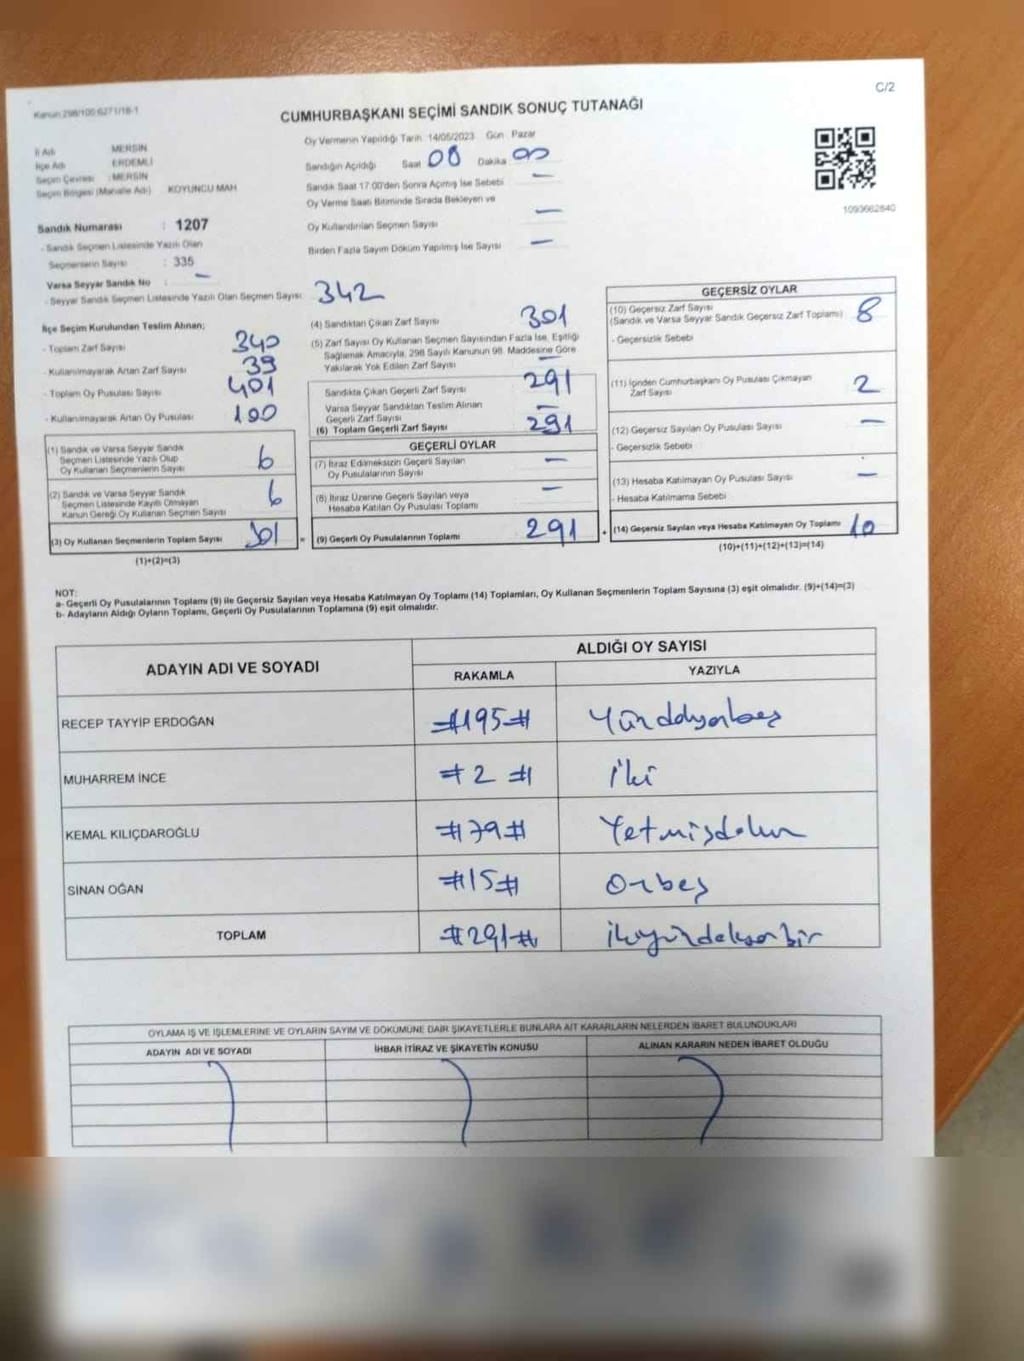 Kanun:298/100-6271/18-1
C/2
CUMHURBAŞKANI SEÇİMİ SANDIK SONUÇ TUTANAĞI
İl Adı MERSİN
İlçe Adı ERDEMLİ
Seçim Çevresi : MERSİN
Seçim Bölgesi (Mahalle Adı) KOYUNCU MAH
Sandık Numarası : 1207
- Sandık Seçmen Listesinde Yazılı Olan
Seçmenlerin Sayısı : 335
Varsa Seyyar Sandık No : —
- Seyyar Sandık Seçmen Listesinde Yazılı Olan Seçmen Sayısı 342
Oy Vermenin Yapıldığı Tarih 14/05/2023 Gün Pazar
Sandığın Açıldığı Saat 08 Dakika 00
Sandık Saat 17:00'den Sonra Açılmış İse Sebebi —
Oy Verme Saati Bitiminde Sırada Bekleyen ve
Oy Kullandırılan Seçmen Sayısı —
Birden Fazla Sayım Döküm Yapılmış İse Sayısı —
1093662840
İlçe Seçim Kurulundan Teslim Alınan;
- Toplam Zarf Sayısı 340
- Kullanılmayarak Artan Zarf Sayısı 39
- Toplam Oy Pusulası Sayısı 401
- Kullanılmayarak Artan Oy Pusulası 100
(1) Sandık ve Varsa Seyyar Sandık
Seçmen Listesinde Yazılı Olup
Oy Kullanan Seçmenlerin Sayısı 6
(2) Sandık ve Varsa Seyyar Sandık
Seçmen Listesinde Kayıtlı Olmayan
Kanun Gereği Oy Kullanan Seçmen Sayısı 6
(3) Oy Kullanan Seçmenlerin Toplam Sayısı 301
(1)+(2)=(3)
(4) Sandıktan Çıkan Zarf Sayısı 301
(5) Zarf Sayısı Oy Kullanan Seçmen Sayısından Fazla İse, Eşitliği
Sağlamak Amacıyla, 298 Sayılı Kanunun 98. Maddesine Göre
Yakılarak Yok Edilen Zarf Sayısı —
Sandıkta Çıkan Geçerli Zarf Sayısı 291
Varsa Seyyar Sandıktan Teslim Alınan
Geçerli Zarf Sayısı —
(6) Toplam Geçerli Zarf Sayısı 291
GEÇERLİ OYLAR
(7) İtiraz Edilmeksizin Geçerli Sayılan
Oy Pusulalarının Sayısı —
(8) İtiraz Üzerine Geçerli Sayılan veya
Hesaba Katılan Oy Pusulası Toplamı —
= (9) Geçerli Oy Pusulalarının Toplamı 291
GEÇERSİZ OYLAR
(10) Geçersiz Zarf Sayısı
(Sandık ve Varsa Seyyar Sandık Geçersiz Zarf Toplamı) 8
- Geçersizlik Sebebi
(11) İçinden Cumhurbaşkanı Oy Pusulası Çıkmayan
Zarf Sayısı 2
(12) Geçersiz Sayılan Oy Pusulası Sayısı —
- Geçersizlik Sebebi
(13) Hesaba Katılmayan Oy Pusulası Sayısı —
- Hesaba Katılmama Sebebi
+ (14) Geçersiz Sayılan veya Hesaba Katılmayan Oy Toplamı 10
(10)+(11)+(12)+(13)=(14)
NOT:
a- Geçerli Oy Pusulalarının Toplamı (9) ile Geçersiz Sayılan veya Hesaba Katılmayan Oy Toplamı (14) Toplamları, Oy Kullanan Seçmenlerin Toplam Sayısına (3) eşit olmalıdır. (9)+(14)=(3)
b- Adayların Aldığı Oyların Toplamı, Geçerli Oy Pusulalarının Toplamına (9) eşit olmalıdır.
ADAYIN ADI VE SOYADI
ALDIĞI OY SAYISI
RAKAMLA YAZIYLA
RECEP TAYYİP ERDOĞAN #195# Yüzdoksanbeş
MUHARREM İNCE #2# İki
KEMAL KILIÇDAROĞLU #79# Yetmişdokuz
SİNAN OĞAN #15# Onbeş
TOPLAM #291# ikiyüzdoksanbir
OYLAMA İŞ VE İŞLEMLERİNE VE OYLARIN SAYIM VE DÖKÜMÜNE DAİR ŞİKAYETLERLE BUNLARA AİT KARARLARIN NELERDEN İBARET BULUNDUKLARI
ADAYIN ADI VE SOYADI İHBAR İTİRAZ VE ŞİKAYETİN KONUSU ALINAN KARARIN NEDEN İBARET OLDUĞU